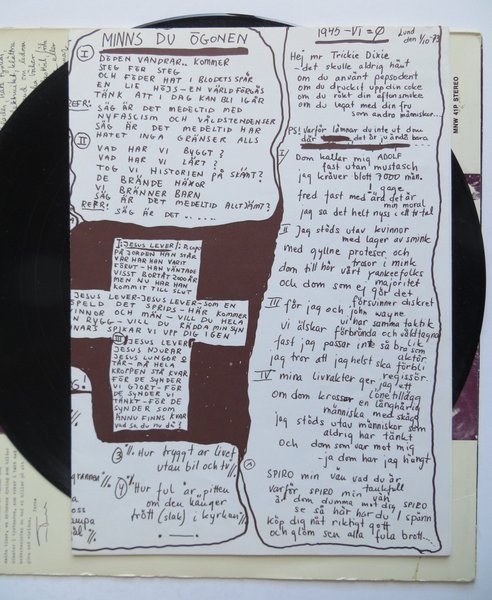 MINNS DU ÖGONEN
I
DÖDEN VANDRAR.. KOMMER
STEG FÖR STEG
OCH FÖDER HAT I BLODETS SPÅR
EN LIE HÖJS - EN VÄRLD FÖRGÅS
TÄNK ATT I DAG KAN BLI IGÅR
REFR:
SÄG ÄR DET MEDELTID MED
NYFASCISM OCH VÅLDSTENDENSER
SÄG ÄR DET MEDELTID HAR
HATET INGA GRÄNSER ALLS
II
VAD HAR VI BYGGT?
VAD HAR VI LÄRT?
TOG VI HISTORIEN PÅ SKÄMT?
DE BRÄNDE HÄXOR
VI BRÄNNER BARN
SÄG ÄR DET MEDELTID ALLTJÄMT?
REFR!
SÄG ÄR DET ......
JESUS LEVER
PÅ JORDEN HAN STÅR
VAR HAR HAN VARIT
FÖRUT - HAN VÄNTADE
VISST BORTÅT 2000 ÅR
MEN NU HAR HAN
TAGIT TILL SLUT
JESUS LEVER-JESUS LEVER-SOM EN
SPELD DET SPRIDS - HÄR KOMMER
KVINNOR OCH MÄN - VILL DU HELA
MIN RYGG - VILL DU RÄDDA MIN SYN
ANNARS SPIKAR VI UPP DIG IGEN
III
JESUS LEVER
JESUS NJURAR
JESUS LUNGOR &
TÅR - MÅ HELA
KROPPEN STÅ KVAR
FÖR DE SYNDER
VI GJORT - FÖR
DE SYNDER VI
TÄNKT - FÖR DE
SYNDER SOM
ÄNNU FINNS KVAR
vad sa du nu då?
③ "/. Hur tryggt är livet
utan bil och tv "/.
④ "/. Hur ful är pitten
om den hänger
trött (slak) i kyrkan "/.
1945 - VI = 0
Lund
den 1/10 73
Hej mr Trickie Dixie
det skulle aldrig hänt
om du använt pepsodent
om du druckit upp din coke
om du rökt din aftonsmoke
om du legat med din fru
som andra människor...
PS! Varför lämnar du inte ut dem
där det är ju ändå bara
I
Dom kallar mig ADOLF
fast utan mustasch
jag kräver blott 7000 man
i gage
fred fast med ärd det är
min moral
jag sa det helt nyss i ett tv-tal
II
Jag stöds utav kvinnor
med lager av smink
med gyllne proteser och
trosor i mink
dom till hör vårt yankeefolks
majoritet
och dom som ej gör det
försvinner diskret
III
för jag och john wayne
vi har samma taktik
vi älskar förbrända och våldtagna
fast jag passar inte så bra som
aktör
jag tror att jag helst ska förbli
regissör.
IV
mina livvakter ger jag ett
lönetillägg
om dom krossar en långhårig
människa med skägg
jag stöds utav människor som
aldrig har tänkt
och dom som var mot mig
- ja dom har jag hängt
SPIRO min vän vad du är
tankfull
varför SPIRO min vän
är dom dumma mot dig SPIRO
se så här har du 1 spänn
köp dig nåt riktigt gott
och glöm sen alla fula brott...
MNW 41P STEREO